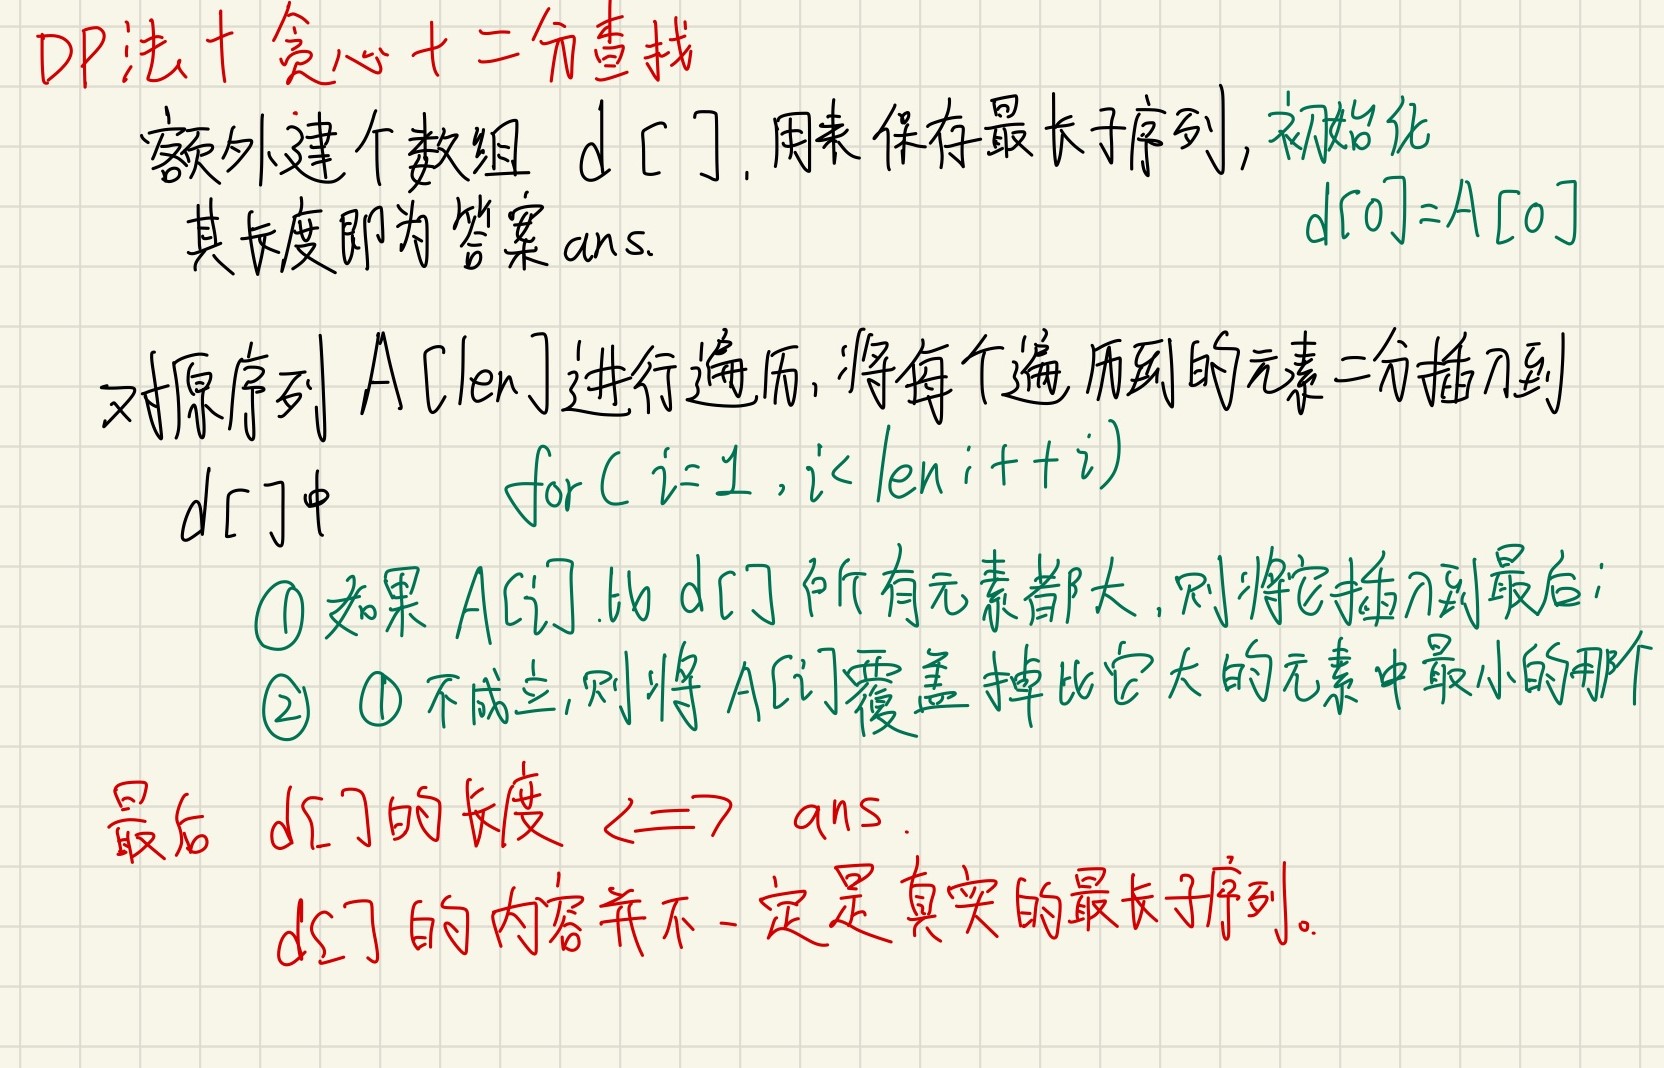 DP法+贪心+二分查找
额外建个数组 d[ ].用来保存最长子序列,初始化
d[0]=A[0]
其长度即为答案ans.
对原序列 A[len]进行遍历,将每个遍历到的元素二分插入到
d[ ]中
for( i=1,i<len;++i)
① 如果 A[i].比 d[ ] 所有元素都大,则将它插入到最后;
② ① 不成立,则将 A[i]覆盖掉比它大的元素中最小的那个
最后 d[ ]的长度 <=> ans.
d[ ] 的内容并不一定是真实的最长子序列。